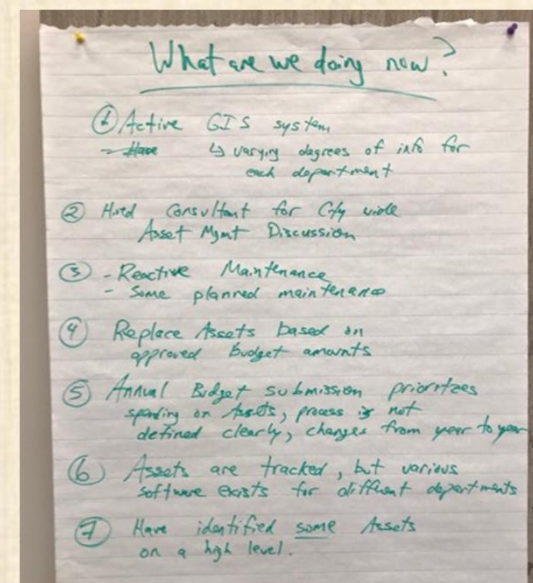 What are we doing now?
① Active GIS system
- Have ↳ varying degrees of info for
each department
② Hired Consultant for City wide
Asset Mgmt Discussion
③ - Reactive Maintenance
- Some planned maintenance
④ Replace Assets based on
approved budget amounts
⑤ Annual Budget submission prioritizes
spending on Assets, process is not
defined clearly, changes from year to year
⑥ Assets are tracked, but various
software exists for different departments
⑦ Have identified some Assets
on a high level.